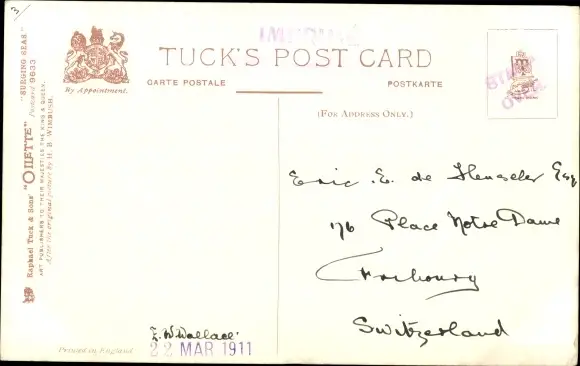 3
IMPRIMÉ
TUCK'S POST CARD
CARTE POSTALE
POSTKARTE
By Appointment.
(FOR ADDRESS ONLY.)
STAMP
OVER
Raphael Tuck & Sons' "OILETTE" "SURGING SEAS" Postcard 9633
ART PUBLISHERS TO THEIR MAJESTIES THE KING & QUEEN.
After the original picture by H. B. WIMBUSH.
Eric. E. de Heuseler Esq
176 Place Notre Dame
Fribourg
Switzerland
E. W. Wallace
22 MAR 1911
Printed in England